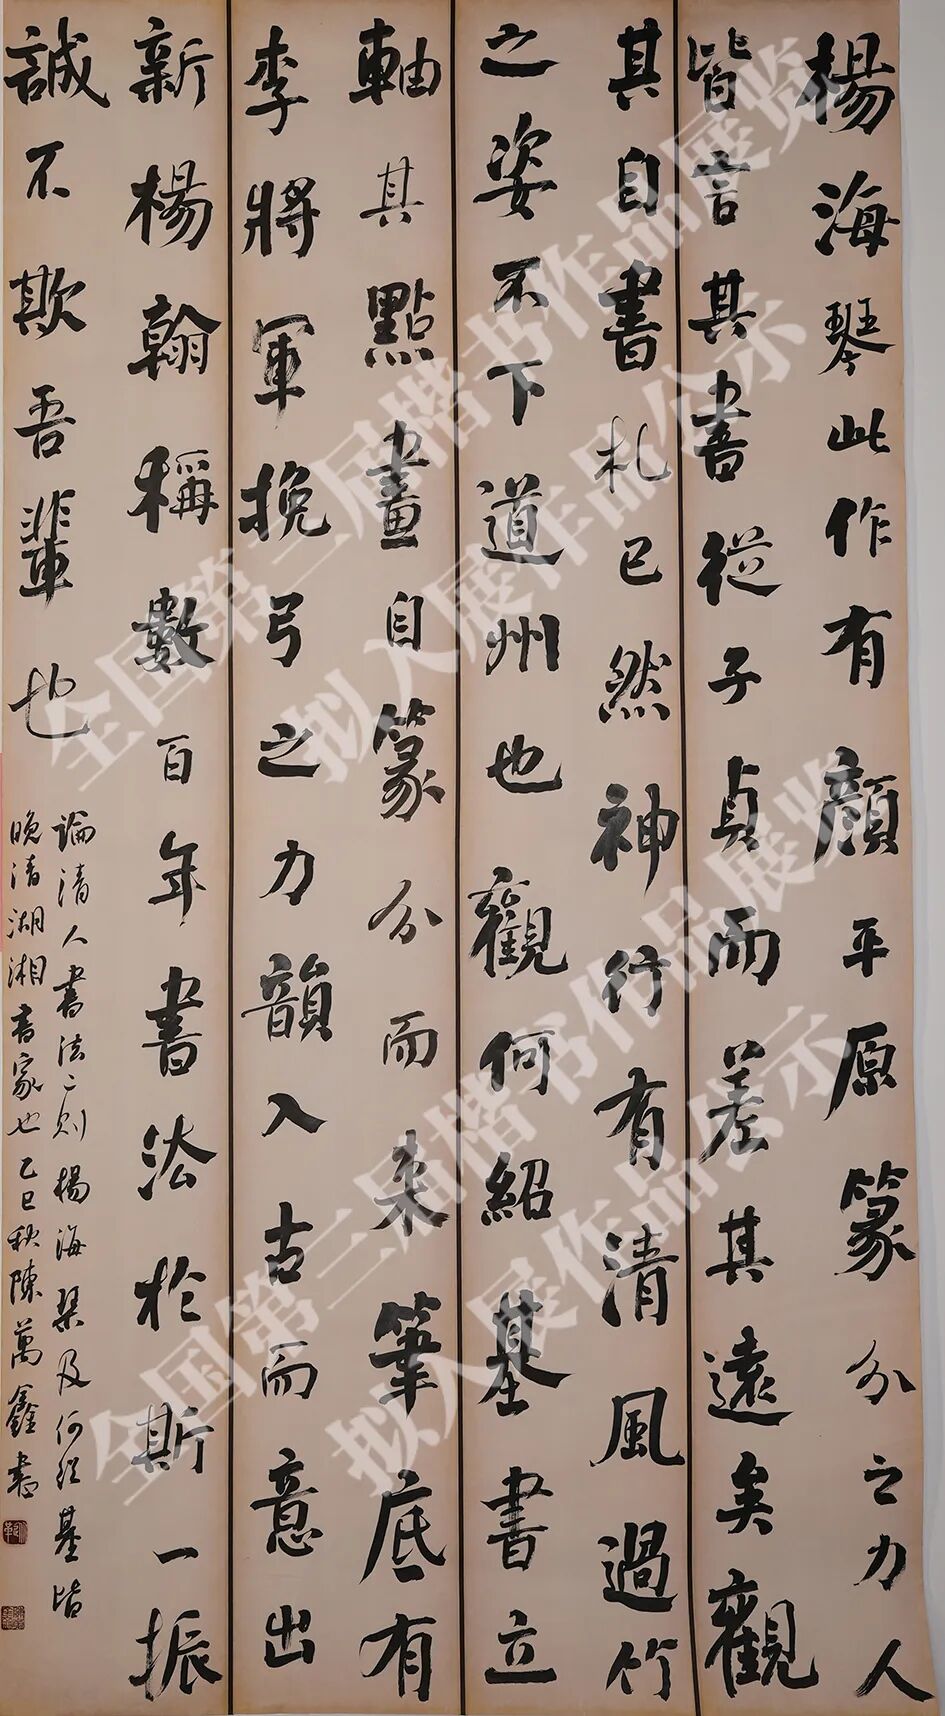 楊海琴此作有顏平原篆分之力人
皆言其書從子貞而差其遠矣觀
其自書札已然神行有清風過竹
之姿不下道州也觀何紹基書立
軸其點畫自篆分而來筆底有
李將軍挽弓之力韻入古而意出
新楊翰稱數百年書法於斯一振
誠不欺吾輩也
論清人書法二則楊海琴及何紹基皆
晚清湖湘書家也乙巳秋陳萬鑫書
全国第三届楷书作品展览
拟入展作品公示
全国第三届楷书作品展览
拟入展作品公示